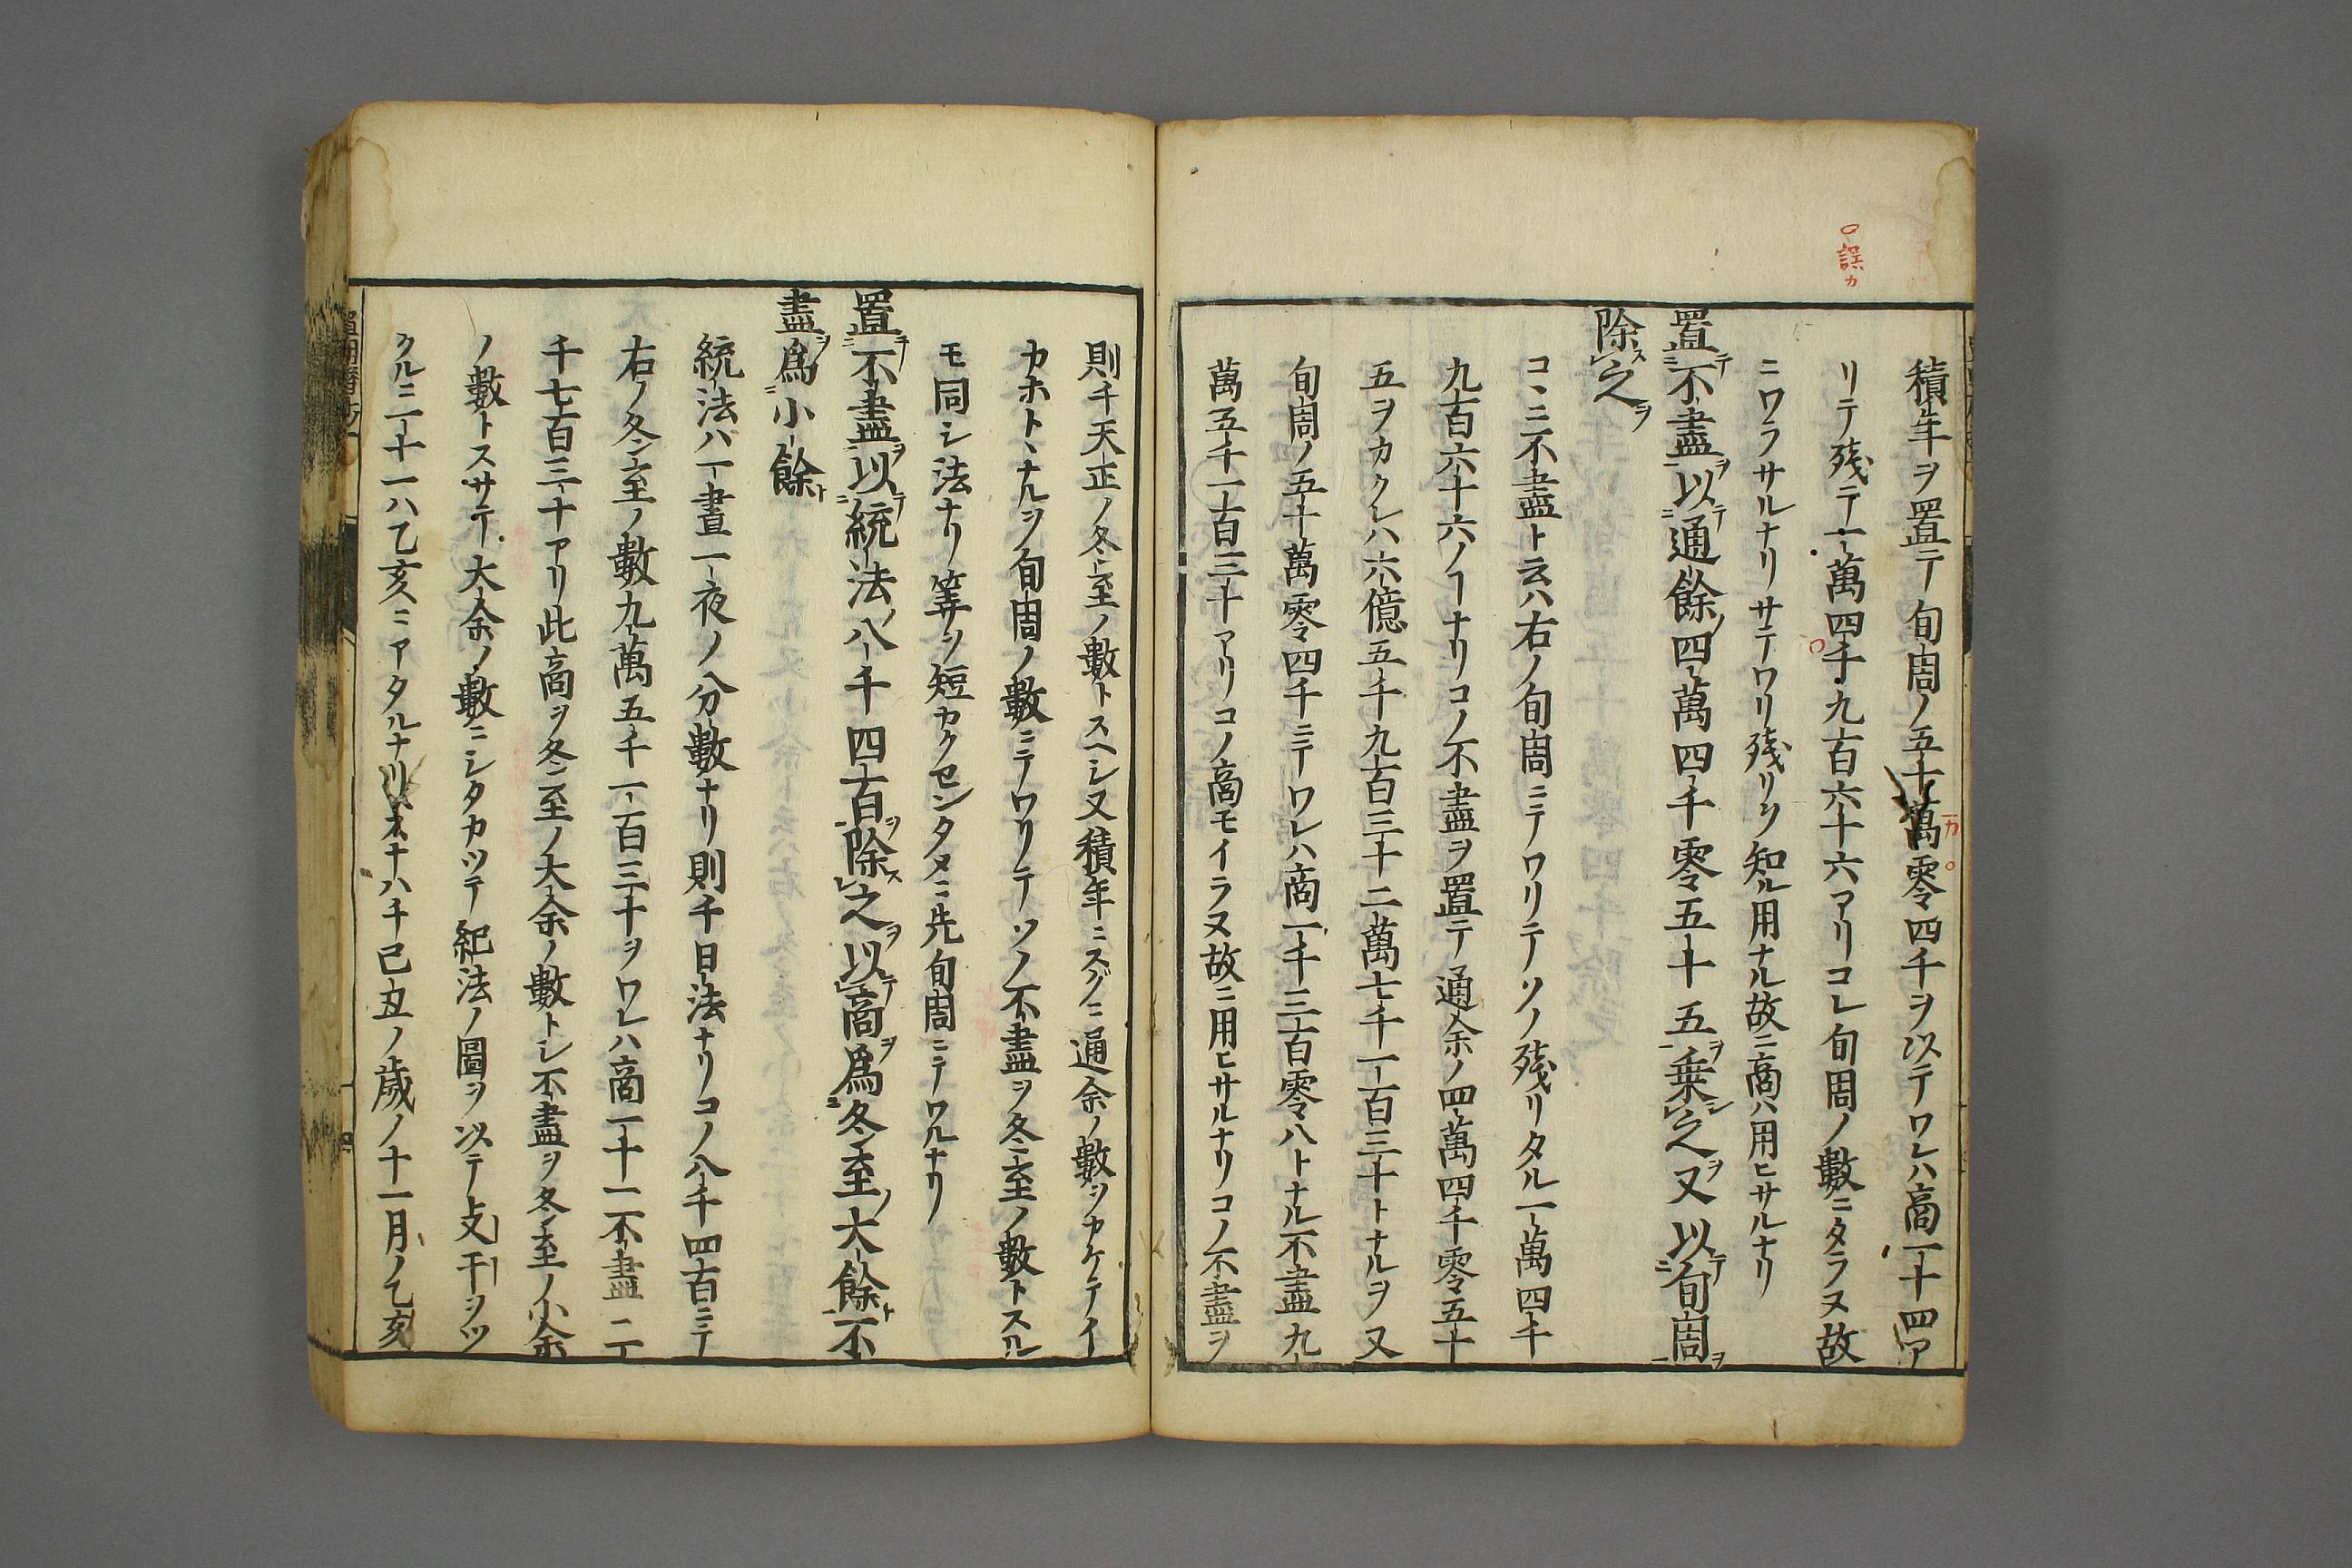 誤カ
積年ヲ置テ旬周ノ五十萬零四千ヲ以テワレハ商一十四ア
リテ殘テ一萬四千九百六十六アリコレ旬周ノ數ニタラヌ故
ニワラサルナリサテワリ殘リヲ知ル用ナル故ニ商ハ用ヒサルナリ
置テ不盡ヲ以テ通餘ノ四萬四千零五十五ヲ乗シ之ヲ又以テ旬周ヲ
除ス之ヲ
コヽニ不盡ト云ハ右ノ旬周ニテワリテソノ殘リタル一萬四千
九百六十六ノ𬼀ナリコノ不盡ヲ置テ通余ノ四萬四千零五十
五ヲカクレハ六億五千九百三十二萬七千一百三十トナルヲ又
旬周ノ五十萬零四千ニテワレハ商一千三百零八トナル不盡九
萬五千一百三十アリコノ商モイラヌ故ニ用ヒサルナリコノ不盡ヲ
則千天正ノ冬至ノ數トスヘシ又積年ニスグニ通余ノ數ヲカケテイ
カホトヽナルヲ旬周ノ數ニテワリテソノ不盡ヲ冬至ノ數トスル
モ同シ法ナリ筭ヲ短カクセンタメニ先旬周ニテワルナリ
置テ不盡ヲ以テ統法ノ八千四百ヲ除ス之ヲ以テ商ヲ爲冬至ノ大餘ト不
盡ヲ爲小餘ト
統法ハ一晝一夜ノ分數ナリ則千日法ナリコノ八千四百ニテ
右ノ冬至ノ數九萬五千一百三十ヲワレハ商一十一不盡二
千七百三十アリ此商ヲ冬至ノ大余ノ數トシ不盡ヲ冬至ノ小余
ノ數トスサテ大余ノ數ニシタカツテ紀法ノ圖ヲ以テ支干ヲツ
クルニ一十一ハ乙亥ニアタルナリ十八千己丑ノ歳ノ十一月ノ乙亥